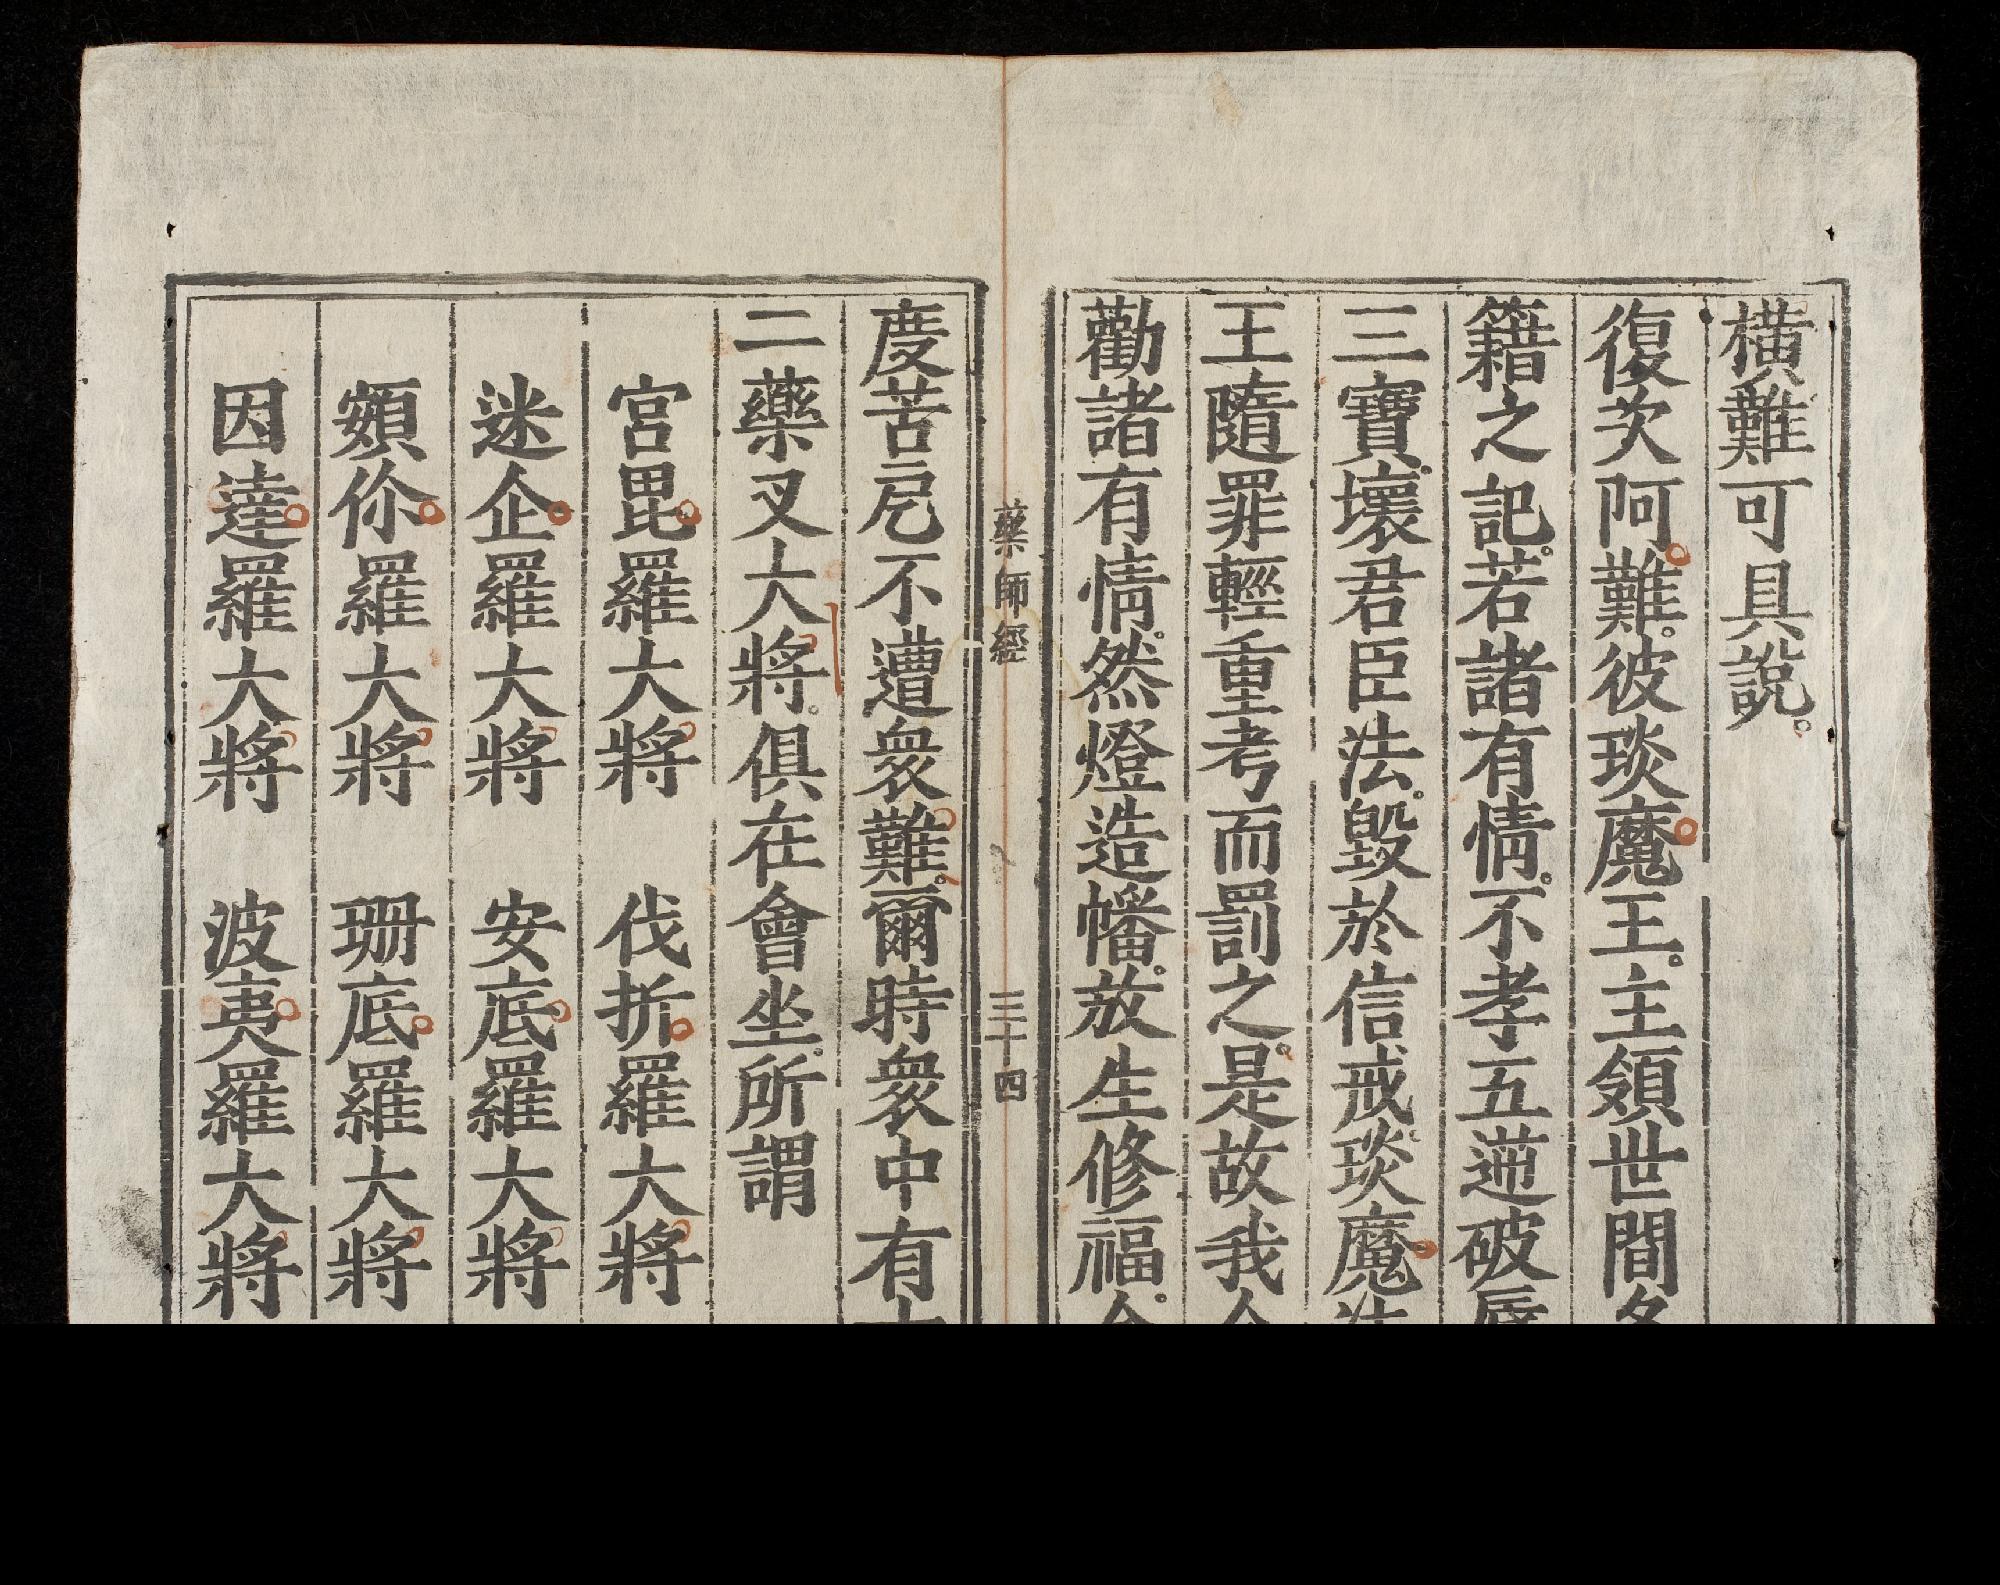 橫難可具說。
復次阿難。彼琰魔王。主領世間
籍之記。若諸有情。不孝五逆破
三寶。壞君臣法。毀於信戒。琰魔
王隨罪輕重考而罰之。是故我
勸諸有情。然燈造幡。放生修福。
藥師經
三十四
度苦厄不遭衆難。爾時衆中有
二藥叉大將。俱在會坐。所謂
宮毘羅大將 伐折羅大將
迷企羅大將 安底羅大將
頞你羅大將 珊底羅大將
因達羅大將 波夷羅大將